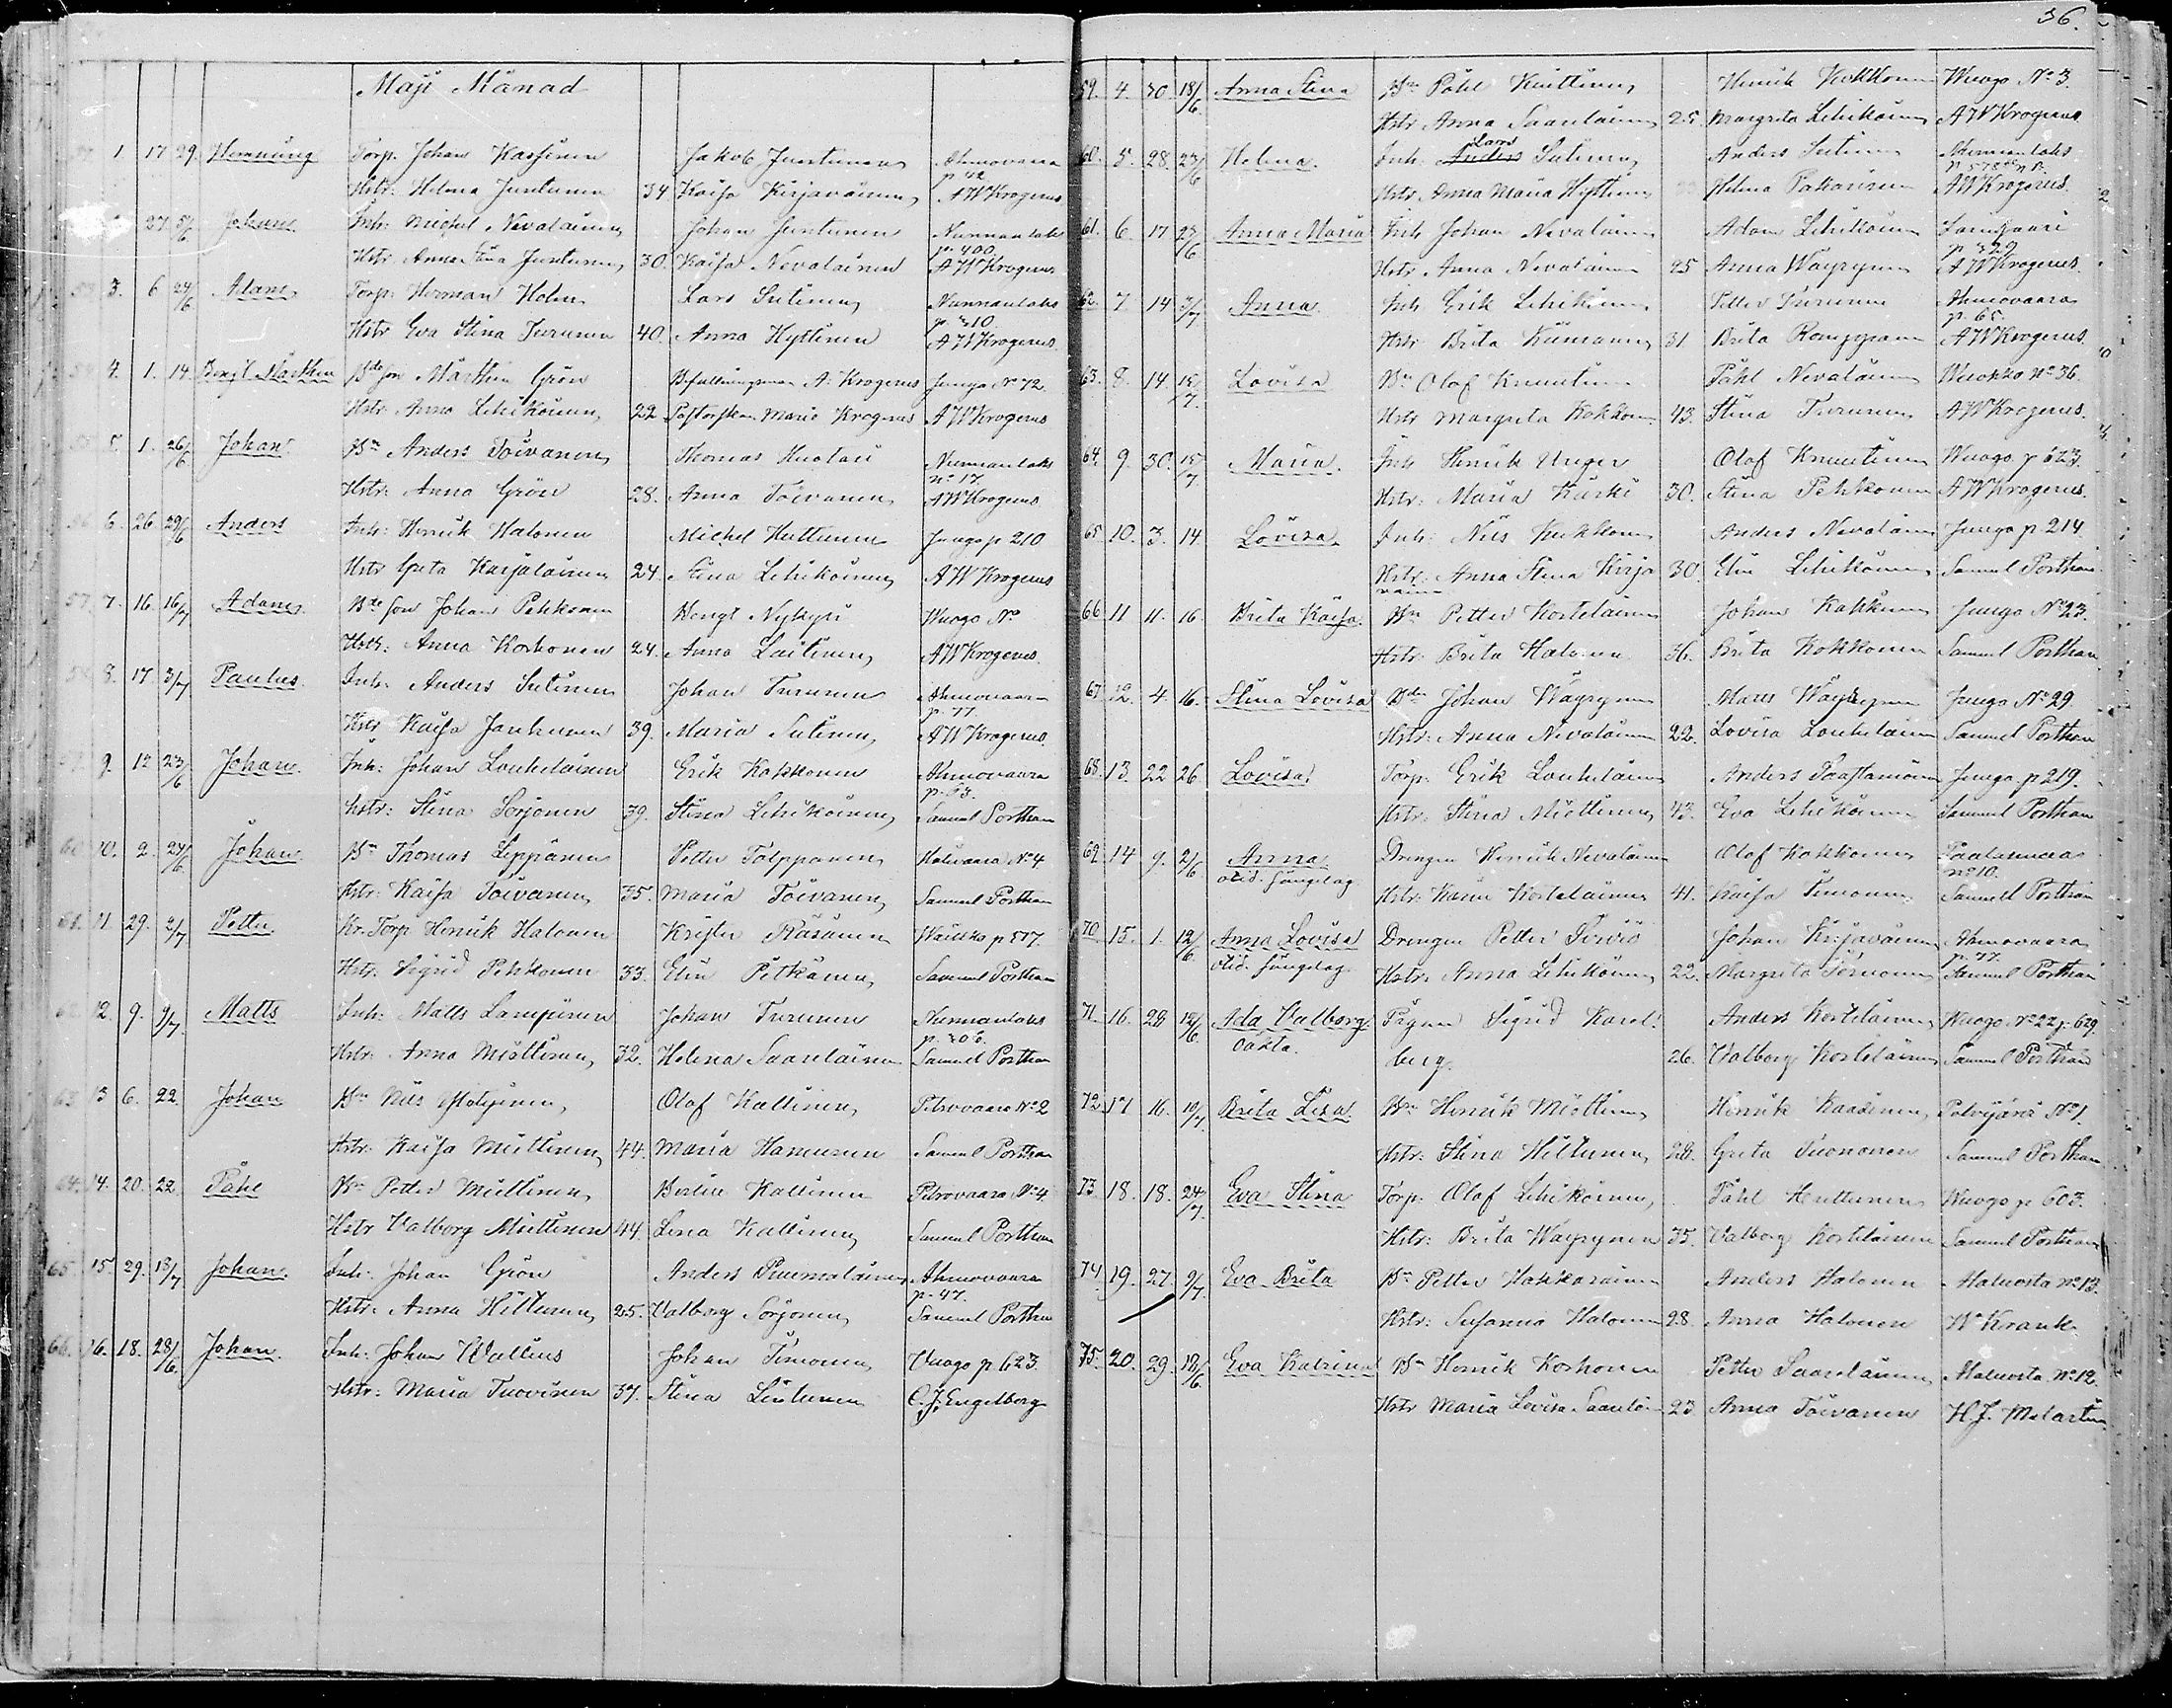 36.
Maji Månad
1 17 29. Hemming Torp. Johan Kassinen Jakob Juntunen Ahmovaara p 42
Hstr: Helena Juntunen 34 Kaisa Kirjavainen AWKrogerus
27 5/6 Johan Inh: Michel Nevalainen Johan Juntunen Nurmanlaks p. 400
Hstr Anna Stina Juntunen 30. Kaisa Nevalainen AWKrogerus
3. 6 24/6 Adam Torp: Herman Holm Lars Sutinen Nunnanlaks p. 310
Hstr Eva Stina Turunen 40. Anna Hyttinen AWKrogerus.
4. 1. 14. Bengt Marthin Bdeson Marthin Grön Befallningsman A. Krogerus Junga No 72.
Hstr Anna Lehikoinen 22 Pastorskan Maria Krogerus AWKrogerus
5. 1. 26/6 Johan Bn Anders Toivanen Thomas Huotari Nunnanlaks no 17.
Hstr: Anna Grön 28. Anna Toivanen AWKrogerus
6. 26. 29/6 Anders Inh: Henrik Halonen Michel Huttunen Junga p 210
Hstr Greta Karjalainen 24. Stina Lehikoinen AWKrogerus
57. 7. 16. 16/7 Adam Bdeson Johan Pehkonen Bengt Nykyri Wuogo No
Hstr: Anna Korhonen 24. Anna Laitinen AWKrogerus.
8. 17 3/7 Paulus Inh: Anders Sutinen Johan Turunen Ahmovaara p. 77
Hstr Kaisa Janhunen 39. Maria Sutinen AWKrogerus.
9. 12 23/6 Johan Inh: Johan Louhelainen Erik Kokkonen Ahmovaara p. 63.
Hstr: Stina Sorjonen 39. Stina Lehikoinen Samuel Porthan
60 10. 2. 24/6 Johan Bn Thomas Leppänen Petter Tolppanen Kalivaara No 4
Hstr: Kaisa Toivanen 35. Maria Toivanen Samuel Porthan
61. 11. 29. 2/7 Petter Kr. Torp Henrik Halonen Krister Räsänen p 517.
Hstr: Sigrid Pehkonen 33. Elin Pitkänen Samuel Porthan
62. 12. 9. 9/7 Matts Inh: Matts Lampinen Johan Turunen Nunnanlaks p. 306.
Hstr: Anna Miettinen 32. Helena Saarelainen Samuel Porthan
63. 13 6. 22. Johan Bn Nils Olof Kallinen Petrovaara No 2
Hstr: Kaisa Miettinen 44. Maria Hamunen Samuel Porthan
64. 14. 20. 22 Påhl Bn Petter Miettinen Bertin Kallinen Petrovaara No 4
Hstr Valborg Miettinen 44. Lena Kallinen Samuel Porthan
65. 15. 29. 18/7 Johan Inh: Johan Grön Anders Puumalainen Ahmovaara p. 47.
Hstr: Anna Hiltunen 25. Valborg Sorjonen Samuel Porthan
66. 16. 18. 28/6. Johan. Inh: Johan Wallius Johan Timonen Vuago p 623
Hstr: Maria Tuovinen 37. Stina Lintunen C.J. Engelberg
59. 4. 30. 18/6 Anna Stina Bn Påhl Knuttinen Henrik Kokkonen Wuogo No 3.
Hstr Anna Saarelainen 25. Margreta Lehikoinen AWKrogerus
60. 5. 28. 23/6 Helena. Inh: Anders Lars Sutinen Anders Sutinen Nunnanlaks
Hstr Anna Maria Hyttinen Helena Pakarinen AWKrogerus.
61. 6. 17 23/6 Anna Maria Inh Johan Nevalainen Adam Lehikoinen p 329
Hstr Anna Nevalainen 25 Anna Wäyrynen AWKrogerus.
62. 7. 14 3/7 Anna. Inh: Erik Lehikoinen Petter Turunen Ahmovaara p. 65.
Hstr Brita Kiimanen 31 Brita Romppanen AWKrogerus.
63. 8. 14. 15/7. Lovisa Bn Olof Knuutinen Påhl Nevalainen Wuokko no 36.
Hstr Margreta Kokkonen 43. Stina Turunen AWKrogerus.
64. 9. 30. 15/7 Maria. Inh Henrik Unger Olof Knuutinen Wuogo p 623.
Hstr: Maria Kärki 30. Stina Pehkonen AWKrogerus.
65 10. 3. 14 Lovisa Inh: Nils Kukkonen Anders Nevalainen Junga p. 214
Hstr: Anna Stina Kirjavainen 30 Elin Lehikoinen Samuel Porthan
66 11 11. 16. Brita Kaisa Bn Petter Kortelainen Johan Kokkonen Junga No 23.
Hstr: Brita Halonen 36. Brita Kokkonen Samuel Porthan
67. 12. 4. 16. Stina Lovisa Bden Johan Wäyrynen Matts Wäyrynen Junga No 29.
Hstr: Anna Nevalainen 22. Lovisa Louhelainen Samuel Porthan
68. 13. 22 26. Lovisa Torp: Erik Louhelainen Anders Saastamoinen Junga p 219.
Hstr: Stina Miettinen 43. Eva Lehikoinen Samuel Porthan
69. 14 9. 2/6 Anna Drengen Henrik Nevalainen Olof Kokkonen Paalasmaa no 10.
otid. sängelag Hstr: Karin Kortelainen 41. Kaisa Timonen Samuel Porthan
70 15. 1. 12/6 Anna Lovisa Drengen Petter Turviö Johan Kirjavainen Ahmovaara p. 77.
otid. sängelag Hstr: Anna Lehikoinen 22. Margreta Samuel Porthan
71. 16. 28 12/6 Ada Valborg Pigan Sigrid Karelberg Anders Kortelainen Wuogo No 22 p. 629.
oäkta. 26. Valborg Kortelainen Samuel Porthan
72. 17 16. 19/7 Brita Lisa Bn Henrik Miettinen Henrik Kaasinen Polvijärvi No 1.
Hstr: Stina Hiltunen 28. Greta Tuononen Samuel Porthan
73. 18. 18. 24/7. Eva Stina Torp: Olof Lehikoinen Påhl Huttunen Wuogo p 603.
Hstr: Brita Wäyrynen 35. Valborg Kortelainen Samuel Porthan
74. 19. 27. 9/7. Eva Brita Bn Petter Hakkarainen Anders Halonen Maluosta no 13.
Hstr: Susanna Halonen 28. Anna Halonen W Krank
75. 20. 29. 19/6. Eva Katrina Bn Henrik Korhonen Petter Saarelainen Maluosta. No 12.
Hstr Maria Lovisa 23 Anna Toivanen H.J. Melartin